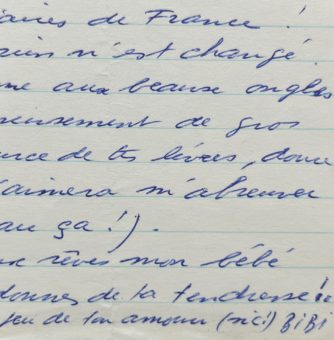 aires de France !
rien n'est changé.
me aux beaux ongles
reusement de gros
urce de tes lèvres, douce
j'aimera m'abreuver
eau ça !).
ux rêves mon bébé
donnes de ta tendresse
jeu de ton amour (sic!) BiBi